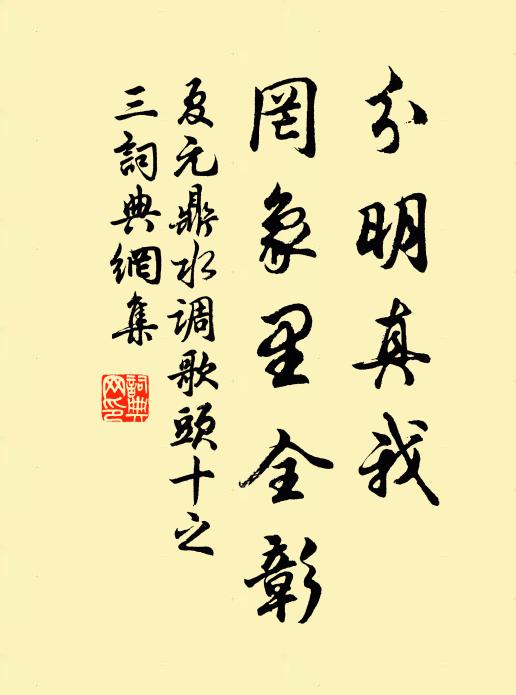 分明真我
罔象里全彰
夏元鼎水调歌頭十之
三詞典網集
詞典网印